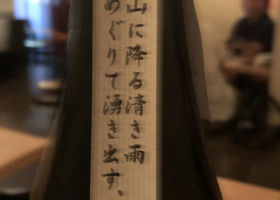 山に降る清き雨
めぐりて湧き出す、